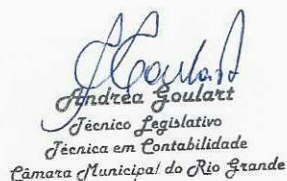 Goulart
Andréa Goulart
Técnico Legislativo
Técnica em Contabilidade
Câmara Municipal do Rio Grande